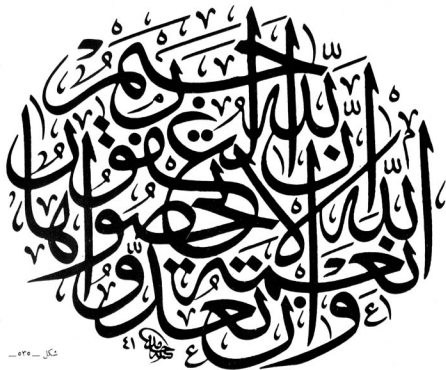 وَإِن تَعُدُّوا نِعْمَةَ اللَّهِ لَا تُحْصُوهَا إِنَّ اللَّهَ لَغَفُورٌ رَّحِيمٌ
٤١
شكل ـ ٥٣٥ ـ